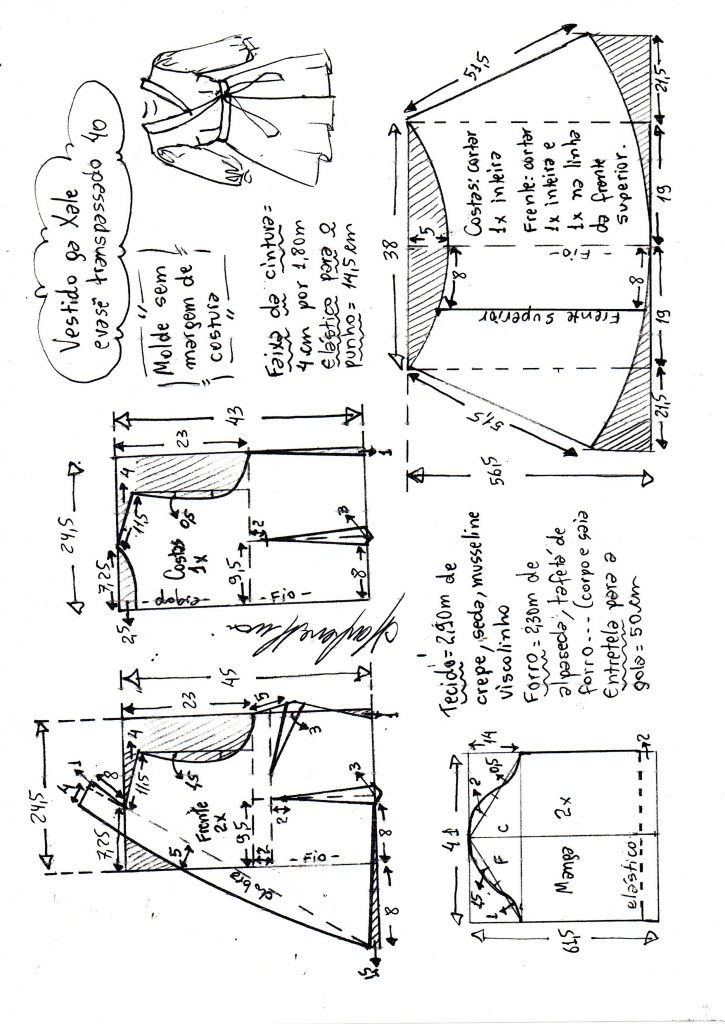 Vestido ga Xale
evasê transpassado 40
Molde sem
margem de
costura
Faixa da cintura =
4 cm por 1,80m
Elástico para o
punho = 14,5 cm
51,5
38
5
Costas: cortar
1x inteira
Frente: cortar
1x inteira e
1x na linha
da frente
superior.
- Fio -
8
8
Frente Superior
21,5
19
19
21,5
51,5
56,5
24,5
7,25
2,5
4
11,5
0,5
23
43
Costas
1x
dobra
- Fio -
9,5
2
3
8
1
24,5
7,25
4
1
8
4
11,5
1,5
23
45
5
3
Frente
2x
9,5
5
2
2
dobra
- Fio -
3
8
8
1,5
1
Tecido = 2,90m de
crepe, seda, musseline
viscolinho
Forro = 2,30m de
alpaseda, tafetá de
forro... (corpo e saia
Entretela para a
gola = 50 cm
41
14
1
1,5
2
0,5
F
C
Manga 2x
elástico
2
61,5